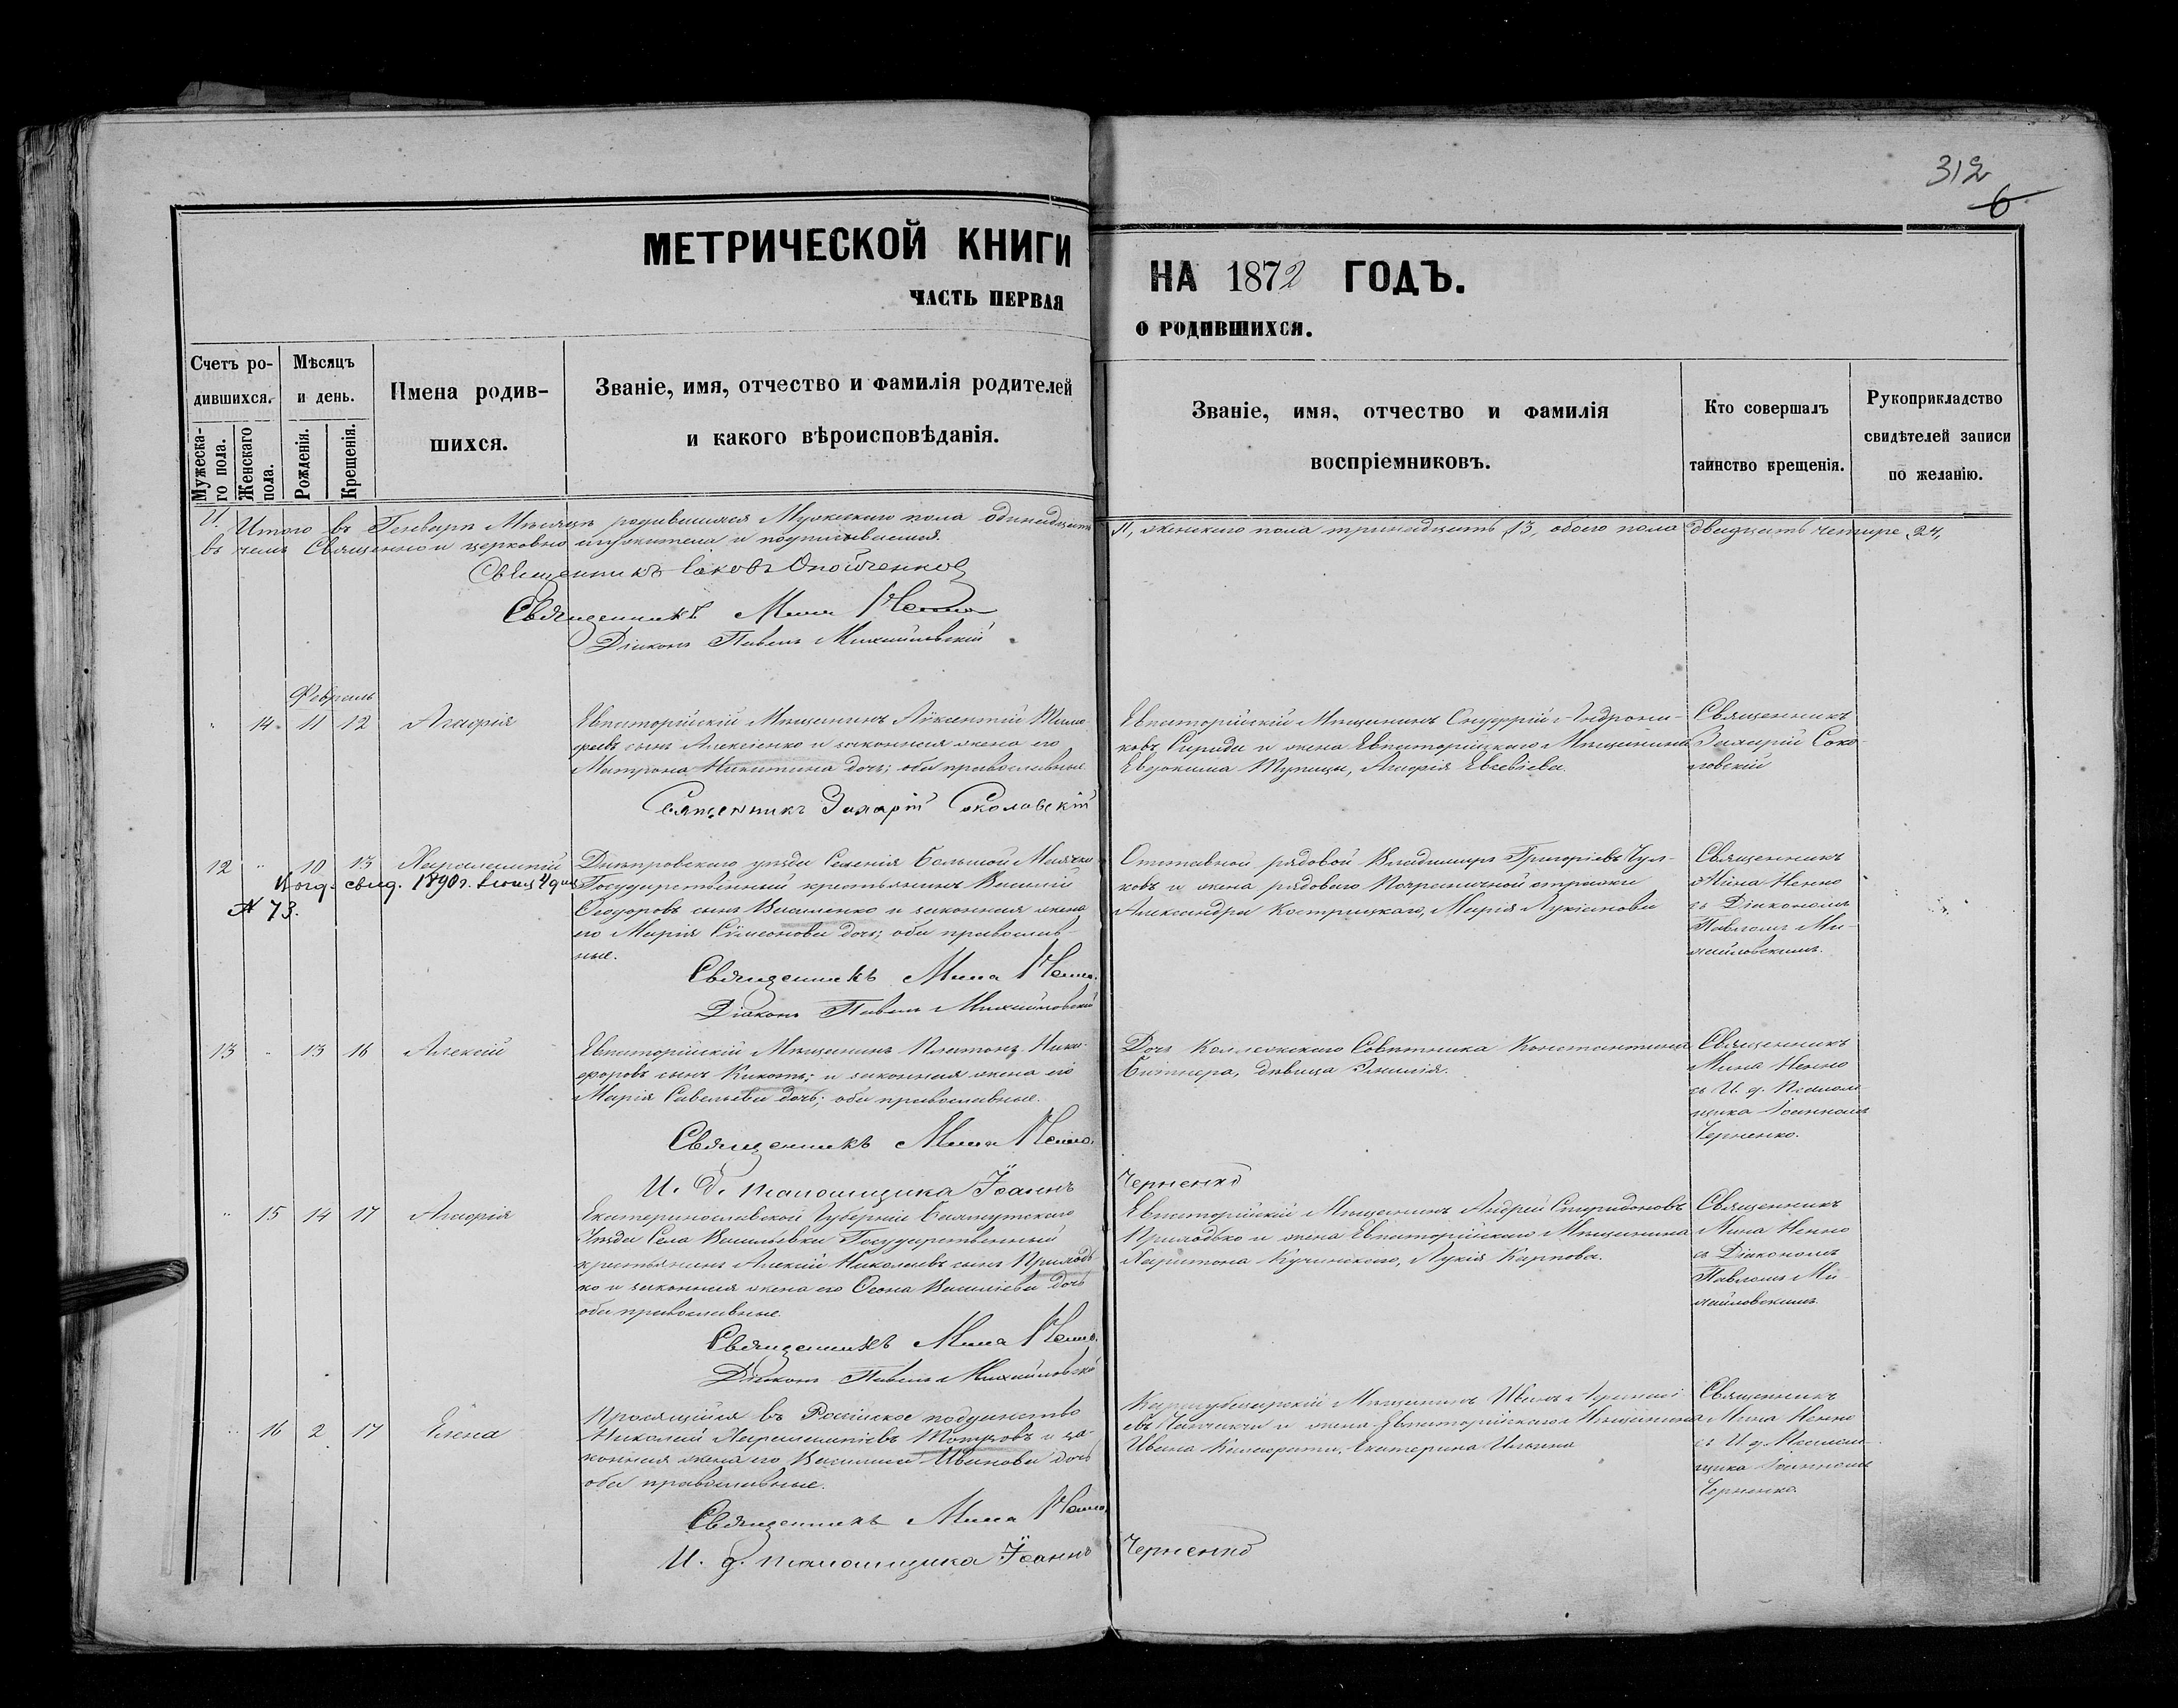 312
6
МЕТРИЧЕСКОЙ КНИГИ
НА 1872 ГОДЪ.
ЧАСТЬ ПЕРВАЯ
О РОДИВШИХСЯ.
Счетъ ро-
дившихся.
Мужеска-
го пола.
Женскаго
пола.
Мѣсяцъ
и день.
Рожденія.
Крещенія.
Имена родив-
шихся.
Званіе, имя, отчество и фамилія родителей
и какого вѣроисповѣданія.
Званіе, имя, отчество и фамилія
воспріемниковъ.
Кто совершалъ
таинство крещенія.
Рукоприкладство
свидѣтелей записи
по желанію.
Итого въ Генварѣ Мѣсяцѣ родившихся Мужескаго пола одинадцать
11, женскаго пола тринадцать 13, обоего пола двадцать четыре 24,
въ чемъ Священно и церковно служители и подписываемся.
Священникъ Іаковъ
Священникъ Мина Ненно
Діаконъ Павелъ Михайловскій
Февраль
14 11 12 Агафія
Евпаторійскій Мѣщанинъ Авксентій Тимо-
феевъ сынъ Алексіенко и законная жена его
Матрона Никитина дочь; оба православные.
Священникъ Захарій Соколовскій
Евпаторійскій Мѣщанинъ Онуфрій Андрони-
ковъ и жена Евпаторійскаго Мѣщанина
Евдокима Тупицы, Агафія Евсевіева.
Священникъ
Захарій Соко-
ловскій
12 10 13 Харалампій
свид. 1890 г.
№ 73.
Днѣпровскаго уѣзда Селенія Большой Маячки
Государственный крестьянинъ Василій
Ѳеодоровъ сынъ Василенко и законная жена
его Марія Сѵмеонова дочь; оба православ-
ные.
Священникъ Мина Ненно.
Діаконъ Павелъ Михайловскій
Отставной рядовой Владимиръ Григоріевъ Чул-
ковъ и жена рядоваго Пограничной стражи
Александра Кострицкаго, Марія Лукіанова
Священникъ
Мина Ненно
съ Діакономъ
Павломъ Ми-
хайловскимъ.
13 13 16 Алексій
Евпаторійскій Мѣщанинъ Платонъ Ники-
форовъ сынъ Кикоть; и законная жена его
Марія Савельева дочь; оба православные.
Священникъ Мина Ненно.
И. д. Псаломщика Іоаннъ Черненко
Дочь Коллежскаго Совѣтника Константина
девица Эмилія.
Священникъ
Мина Ненно
съ И. д. Псалом-
щика Іоанномъ
Черненко.
15 14 17 Агафія
Екатеринославской Губерніи Бахмутскаго
Уѣзда Села Васильевки Государственный
крестьянинъ Алексій Николаевъ сынъ Приходь-
ко и законная жена его Васильева дочь
оба православные.
Священникъ Мина Ненно.
Діаконъ Павелъ Михайловскій
Евпаторійскій Мѣщанинъ Андрей Спиридоновъ
Приходько и жена Евпаторійскаго Мѣщанина
Харитона Кучинскаго, Лукія Карпова.
Священникъ
Мина Ненно
съ Діакономъ
Павломъ Ми-
хайловскимъ.
16 2 17 Елена
Просящійся въ Россійское подданство
Николай Харлампіевъ и за-
конная жена его Василиса Иванова дочь
оба православные.
Священникъ Мина Ненно
И. д. Псаломщика Іоаннъ Черненко
Карасубазарскій Мѣщанинъ Иванъ
и жена Евпаторійскаго Мѣщанина
Ивана Екатерина Ильина
Священникъ
Мина Ненно
съ И. д. Псалом-
щика Іоанномъ
Черненко.